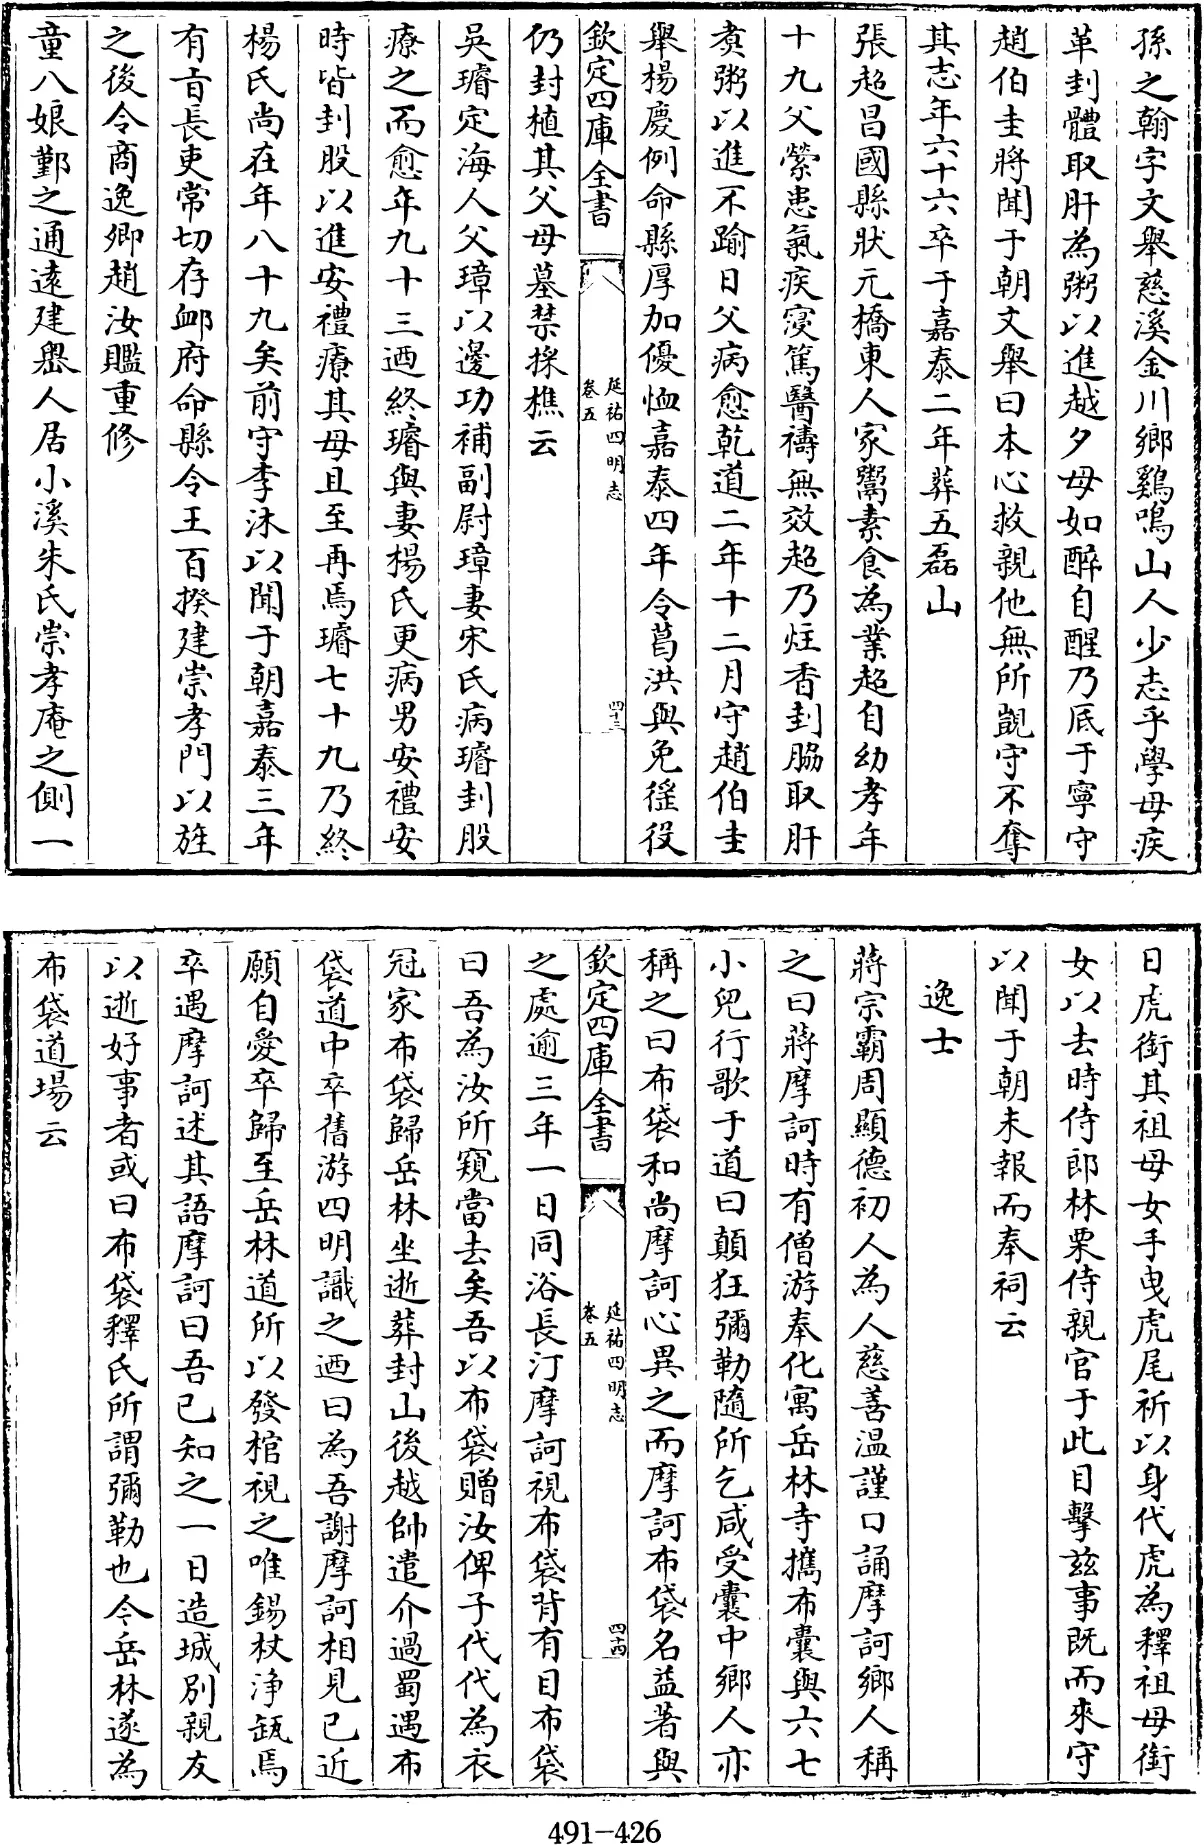 孫之翰字文舉慈溪金川鄉鷄鳴山人少志乎學母疾
革刲體取肝為粥以進越夕母如醉自醒乃底于寧守
趙伯圭將聞于朝文舉曰本心救親他無所覬守不奪
其志年六十六卒于嘉泰二年葬五磊山
張超昌國縣狀元橋東人家鬻素食為業超自幼孝年
十九父縈患氣疾寖篤醫禱無效超乃炷香刲脇取肝
煑粥以進不踰日父病愈乾道二年十二月守趙伯圭
舉楊慶例命縣厚加優恤嘉泰四年令葛洪與免徭役
欽定四庫全書
延祐四明志
卷五
四十三
仍封植其父母墓禁採樵云
吳璿定海人父璋以邊功補副尉璋妻宋氏病璿刲股
療之而愈年九十三迺終璿與妻楊氏更病男安禮安
時皆刲股以進安禮療其母且至再焉璿七十九乃終
楊氏尚在年八十九矣前守李沐以聞于朝嘉泰三年
有旨長吏常切存卹府命縣令王百揆建崇孝門以旌
之後令商逸卿趙汝䝺重修
童八娘鄞之通遠建嶴人居小溪朱氏崇孝庵之側一
日虎銜其祖母女手曳虎尾祈以身代虎為釋祖母銜
女以去時侍郎林栗侍親官于此目擊茲事既而來守
以聞于朝未報而奉祠云
逸士
蔣宗霸周顯德初人為人慈善溫謹口誦摩訶鄉人稱
之曰蔣摩訶時有僧游奉化寓岳林寺攜布囊與六七
小兒行歌于道曰顛狂彌勒隨所乞咸受囊中鄉人亦
稱之曰布袋和尚摩訶心異之而摩訶布袋名益著與
欽定四庫全書
延祐四明志
卷五
四十四
之處逾三年一日同浴長汀摩訶視布袋背有目布袋
曰吾為汝所窺當去矣吾以布袋贈汝俾子代代為衣
冠家布袋歸岳林坐逝葬封山後越帥遣介過蜀遇布
袋道中卒舊游四明識之迺曰為吾謝摩訶相見已近
願自愛卒歸至岳林道所以發棺視之唯錫杖淨缾焉
卒遇摩訶述其語摩訶曰吾已知之一日造城別親友
以逝好事者或曰布袋釋氏所謂彌勒也今岳林遂為
布袋道場云
491-426